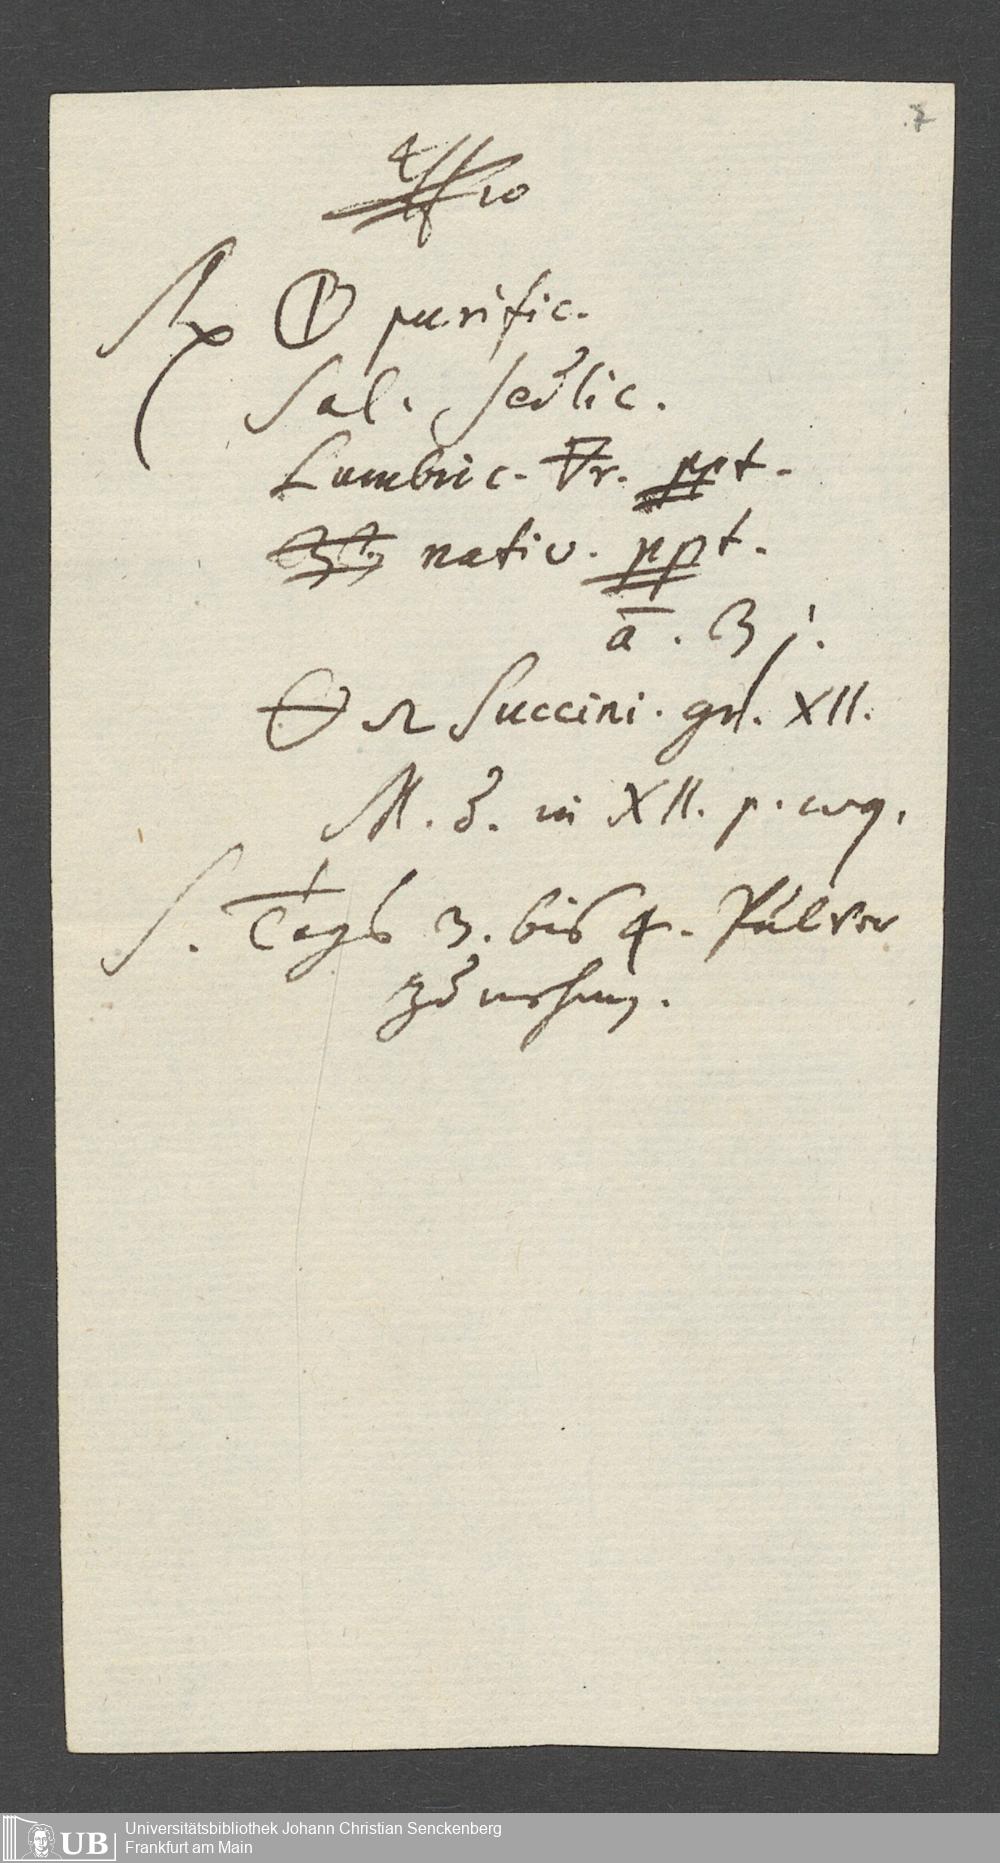 7
4 10
℞ 🜕 purific.
Sal. Sedlic.
Lumbric. 🜃r. ppt.
nativ. ppt.
ā. ʒ j.
🜔 Succini. gr. XII.
M. ꝺ. in XII. p. æq.
S. Tags 3. bis 4. Pulver
zu nehmen.
UB Universitätsbibliothek Johann Christian Senckenberg
Frankfurt am Main